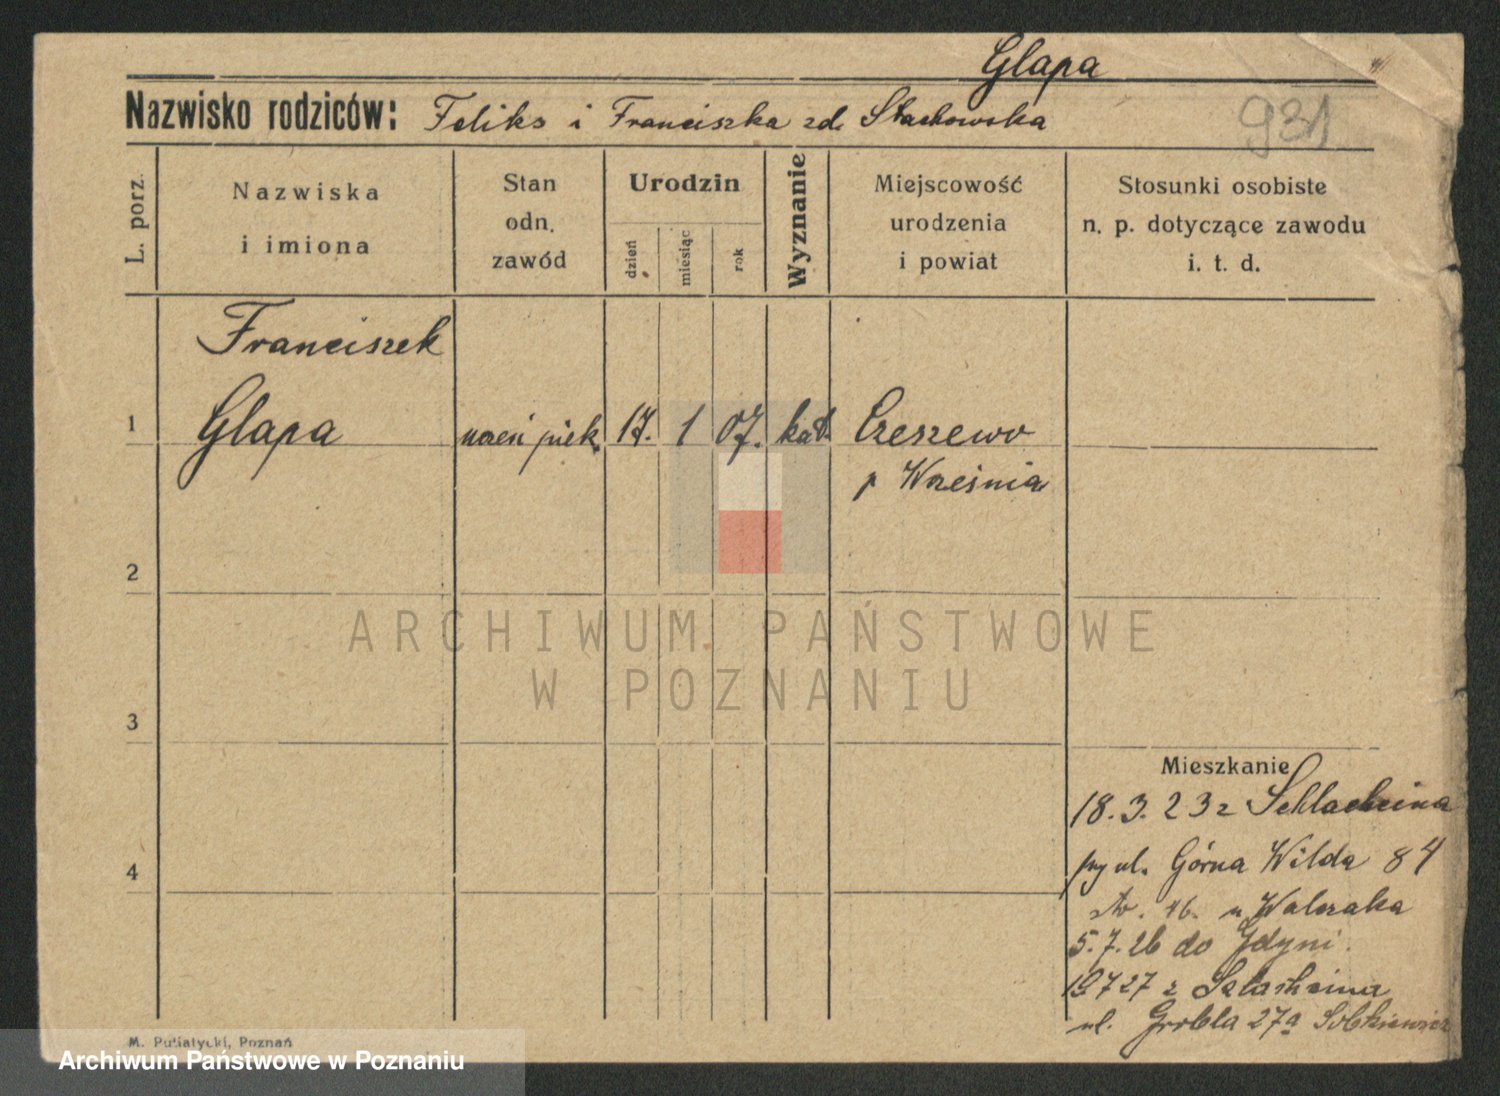 Glapa
Nazwisko rodziców: Feliks i Franciszka zd. Stachowska
931
L. porz.
Nazwiska
i imiona
Stan
odn.
zawód
Urodzin
dzień
miesiąc
rok
Wyznanie
Miejscowość
urodzenia
i powiat
Stosunki osobiste
n. p. dotyczące zawodu
i. t. d.
Franciszek
1 Glapa uczeń piek. 17. 1 07. kat. Czeszewo
p Września
2
ARCHIWUM PAŃSTWOWE
W POZNANIU
3
Mieszkanie
18. 3. 23 z Schlacheina
4
przy ul. Górna Wilda 84
u Walczaka
5. 7. 26 do Gdyni.
19 7 27 z
ul. Grobla 27a Sobkiewicz
M. Putiatycki, Poznań
Archiwum Państwowe w Poznaniu